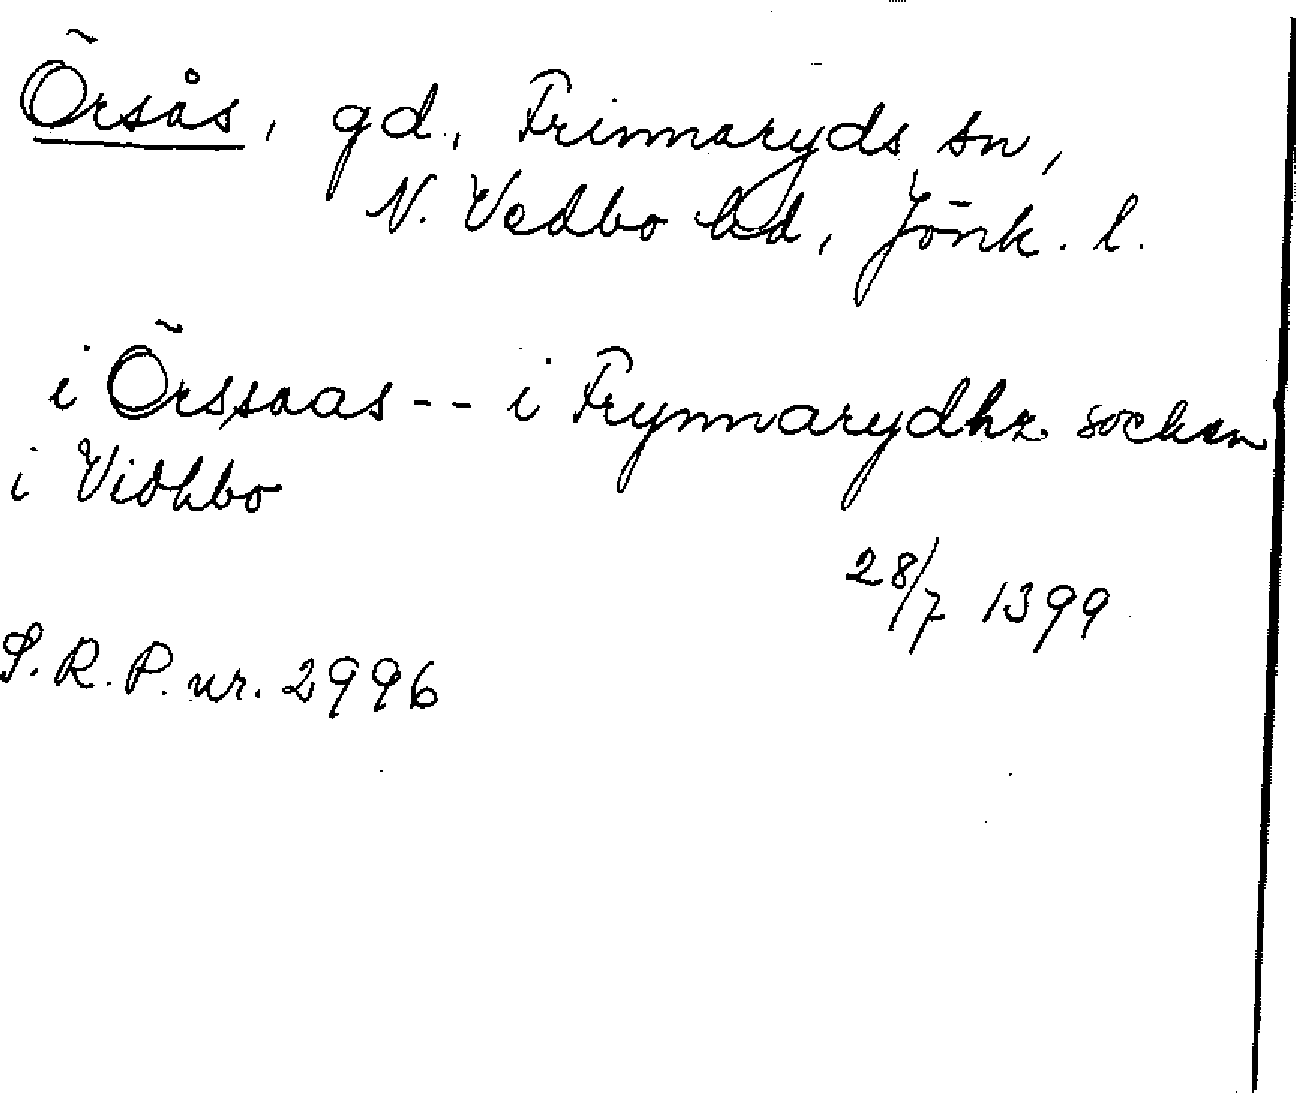 Örsås, gd., Frinnaryds sn,
N. Vedbo hd, Jönk. l.
i Örssaas -- i Frynnarydhz sockan
i Vidhbo
28/7 1399
S.R.P. nr. 2996